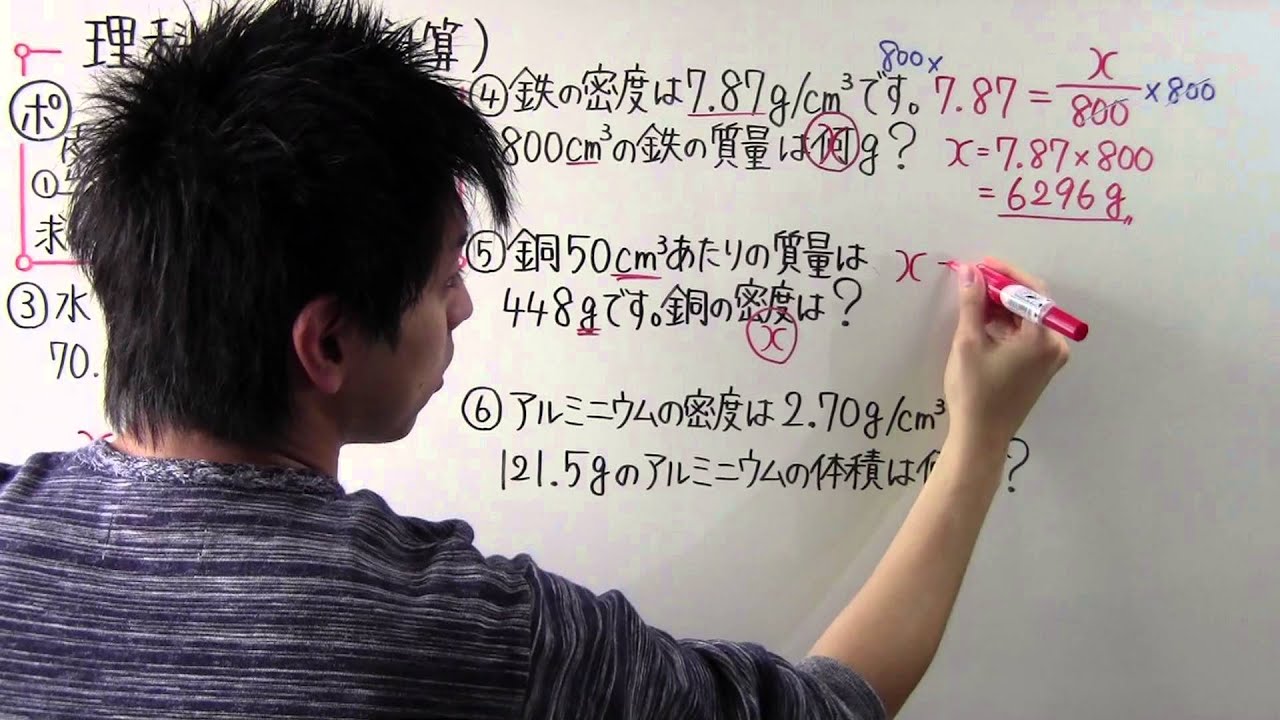 理科 算)
ポ
①
求
③水
70.
④鉄の密度は7.87g/cm³です。
800cm³の鉄の質量は何g?
x
800×
7.87 = x/800 ×800
x = 7.87×800
= 6296g
⑤銅50cm³あたりの質量は
448gです。銅の密度は?
x
x
⑥アルミニウムの密度は2.70g/cm³
121.5gのアルミニウムの体積は ?